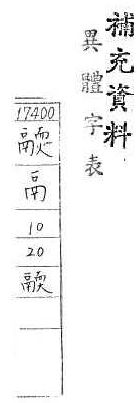 補充資料
異體字表
17400
鬲
10
20